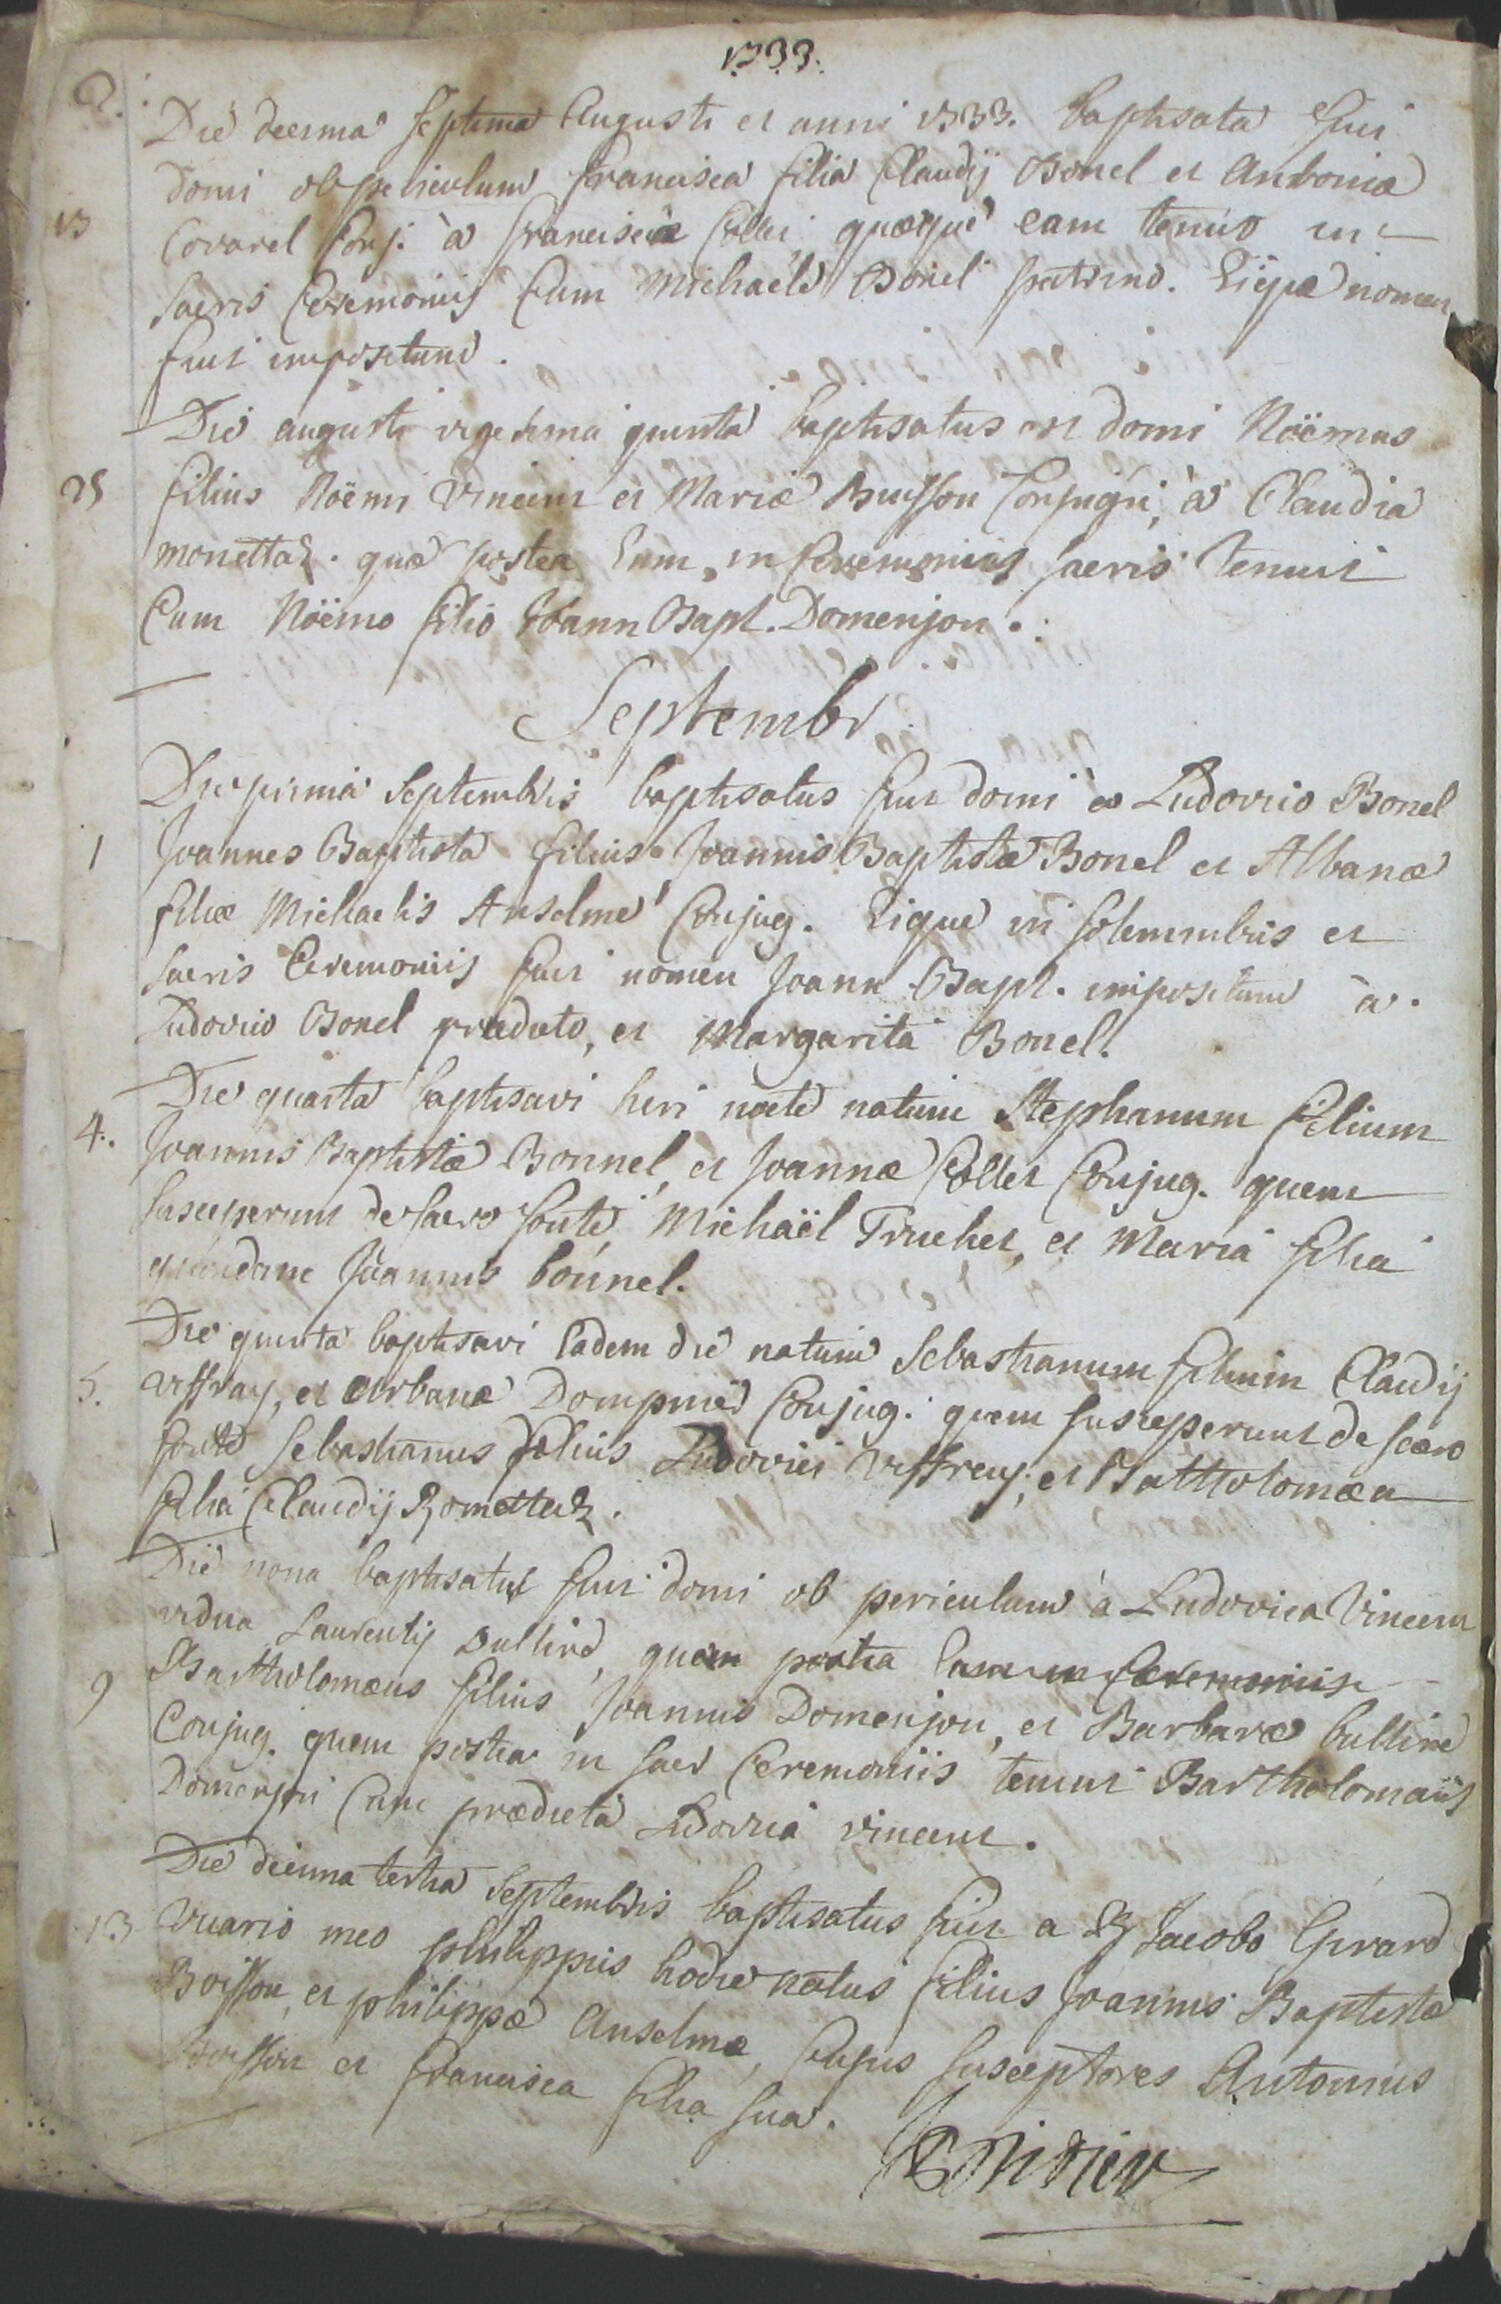 1733.
2.
Die decima septima Augusti et anni 1733. baptisata fuit
domi ob periculum francisca filia Claudij Bonel et Antoniæ
17
Covarel Conj. à francisca Collet quæque eam tenuit in
sacris Ceremoniis Cum Michaele Bonel patrino. Eique nomen
fuit impositum.
Die augusti vigesima quinta baptisatus est domi Noëmus
25
filius Noëmi Vincent et Mariæ Buisson Conjug. à Claudia
monettaz. quæ postea Eum, in Ceremoniis sacris tenuit
Cum Noëmo filio Joann Bapt. Domenjon.
Septembr
Die prima Septembris baptisatus fuit domi à Ludovico Bonel
1
Joannes Baptista filius Joannis Baptistæ Bonel et Albanæ
filiæ Michaelis Anselme Conjug. Eique in solemnibus et
sacris Ceremoniis fuit nomen Joann Bapt. impositum à.
Ludovico Bonel prædicto, et Margarita Bonel.
Die quarta baptisavi heri nocte natum Stephanum filium
4.
Joannis Baptistæ Bonnel, et Joannæ Collet Conjug. quem
susceperunt de sacro fonte Michaël Truchet, et Maria filia
quondam Joannis bonnel.
Die quinta baptisavi Eadem die natum Sebastianum filium Claudij
5.
Uffray, et Urbanæ Dompnier Conjug. quem susceperunt de sacro
fonte Sebastianus filius Ludovici Uffrey; et Bartholomæa
filia Claudij Romettaz.
Die nona baptisatus fuit domi ob periculum à Ludovica Vincent
vidua Laurentij bullind, quem postea Eam in Ceremoniis
9
Bartholomæus filius Joannis Domenjon, et Barbaræ bulline
Conjug. quem postea in sacr Ceremoniis tenuit Bartholomæus
Domenjon Cum prædicta Ludovica vincent.
Die decima tertia Septembris baptisatus fuit a Jacobo Girard
13
Vicario meo philippus hodie natus filius Joannis Baptistæ
Boisson, et philippæ Anselme, Cujus susceptores Antonius
Boisson et francisca filia sua.